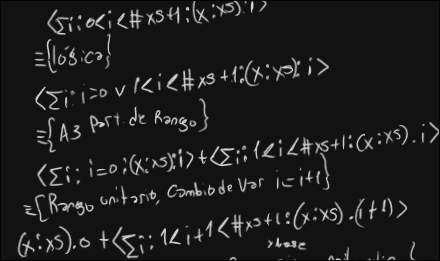 ⟨∑i: 0<i<#xs+1:(x:xs).i⟩
≡{lógica}
⟨∑i: i=0 ∨ 1<i<#xs+1:(x:xs):i⟩
≡{A3 Part. de Rango}
⟨∑i: i=0:(x:xs):i⟩+⟨∑i: 1<i<#xs+1:(x:xs).i⟩
≡{Rango unitario, Cambio de Var i=i+1}
(x:xs).0 +⟨∑i: 1<i+1<#xs+1:(x:xs).(i+1)⟩